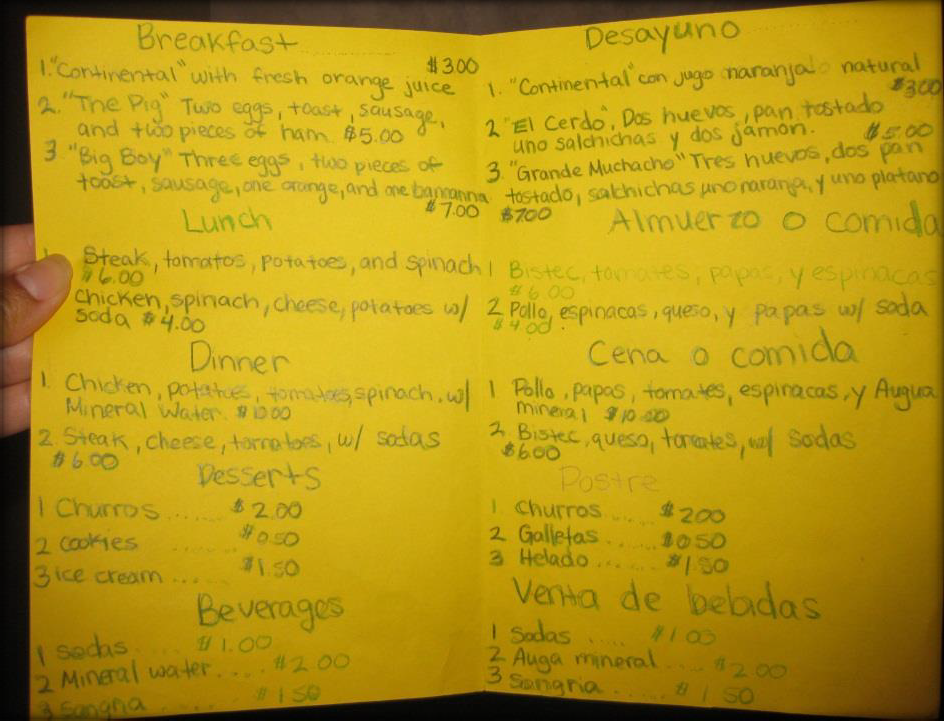 Breakfast
$3.00
1. "Continental" with fresh orange juice
2. "The Pig" Two eggs, toast, sausage,
and two pieces of ham. $5.00
3. "Big Boy" Three eggs, two pieces of
toast, sausage, one orange, and one bananna
$7.00
Lunch
Steak, tomatos, potatoes, and spinach
$6.00
Chicken, spinach, cheese, potatoes w/
soda $4.00
Dinner
1. Chicken, potatoes, tomatoes, spinach, w/
Mineral Water. $10.00
2. Steak, cheese, tomatoes, w/ sodas
$6.00
Desserts
1 Churros ..... $2.00
2 cookies ....... $0.50
3 ice cream ...... $1.50
Beverages
1 sodas ...... $1.00
2 Mineral water .... $2.00
3 Sangria ....... $1.50
Desayuno
1. "Continental" con jugo naranja natural
$3.00
2 "El Cerdo", Dos huevos, pan tostado
uno salchichas y dos jamon. $5.00
3. "Grande Muchacho" Tres huevos, dos pan
tostado, salchichas uno naranja, y uno platano
$7.00
Almuerzo o comida
1 Bistec, tomates, papas, y espinacas
$6.00
2 Pollo, espinacas, queso, y papas w/ soda
$4.00.
Cena o comida
1 Pollo, papas, tomates, espinacas, y Augua
mineral $10.00
2. Bistec, queso, tomates, w/ sodas
$6.00
Postre
1. Churros ..... $2.00
2 Galletas ...... $0.50
3 Helado ..... $1.50
Venta de bebadas
1 Sodas ..... $1.00
2 Auga mineral ..... $2.00
3 Sangria ...... $1.50